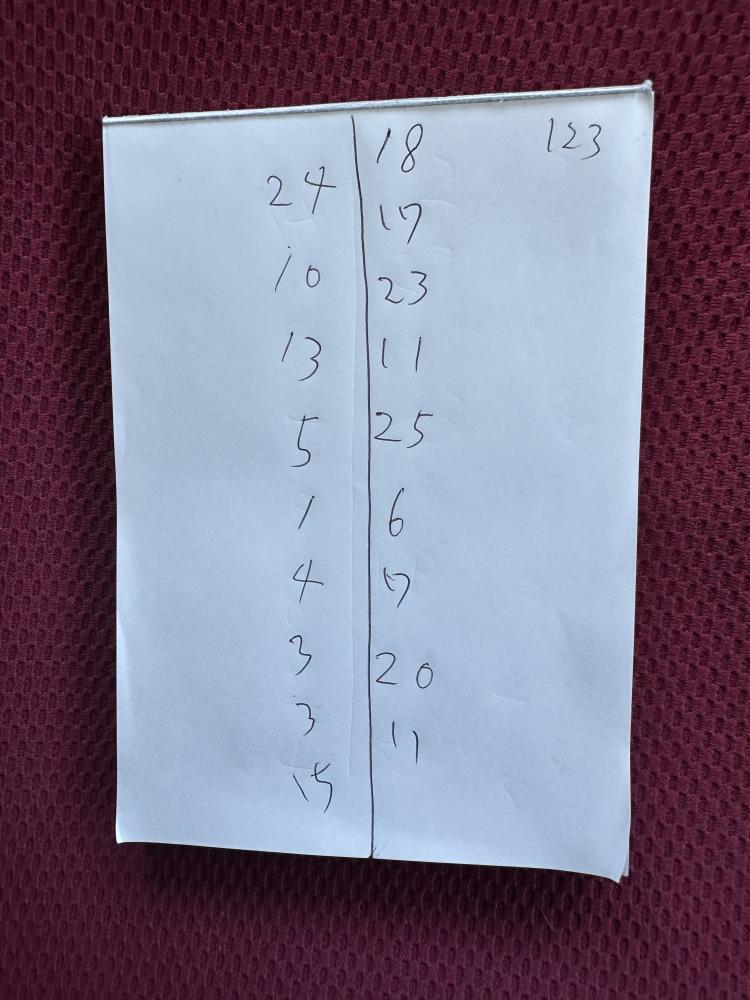 18 123
24
17
10
23
13
11
5
25
1
6
4
7
3
20
3
15